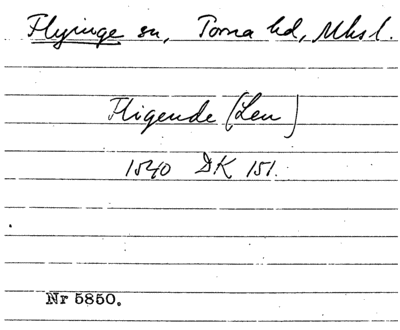 Flyinge sn, Torna hd, Mhsl.
Fligende (Len)
1540 DK 151.
Nr 5850.